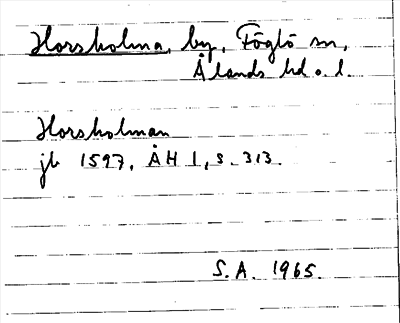 Horsholma, by, Föglö sn,
Ålands hd o. l.
Horsholman
jb 1597, ÅH I, s. 313.
S.A. 1965.